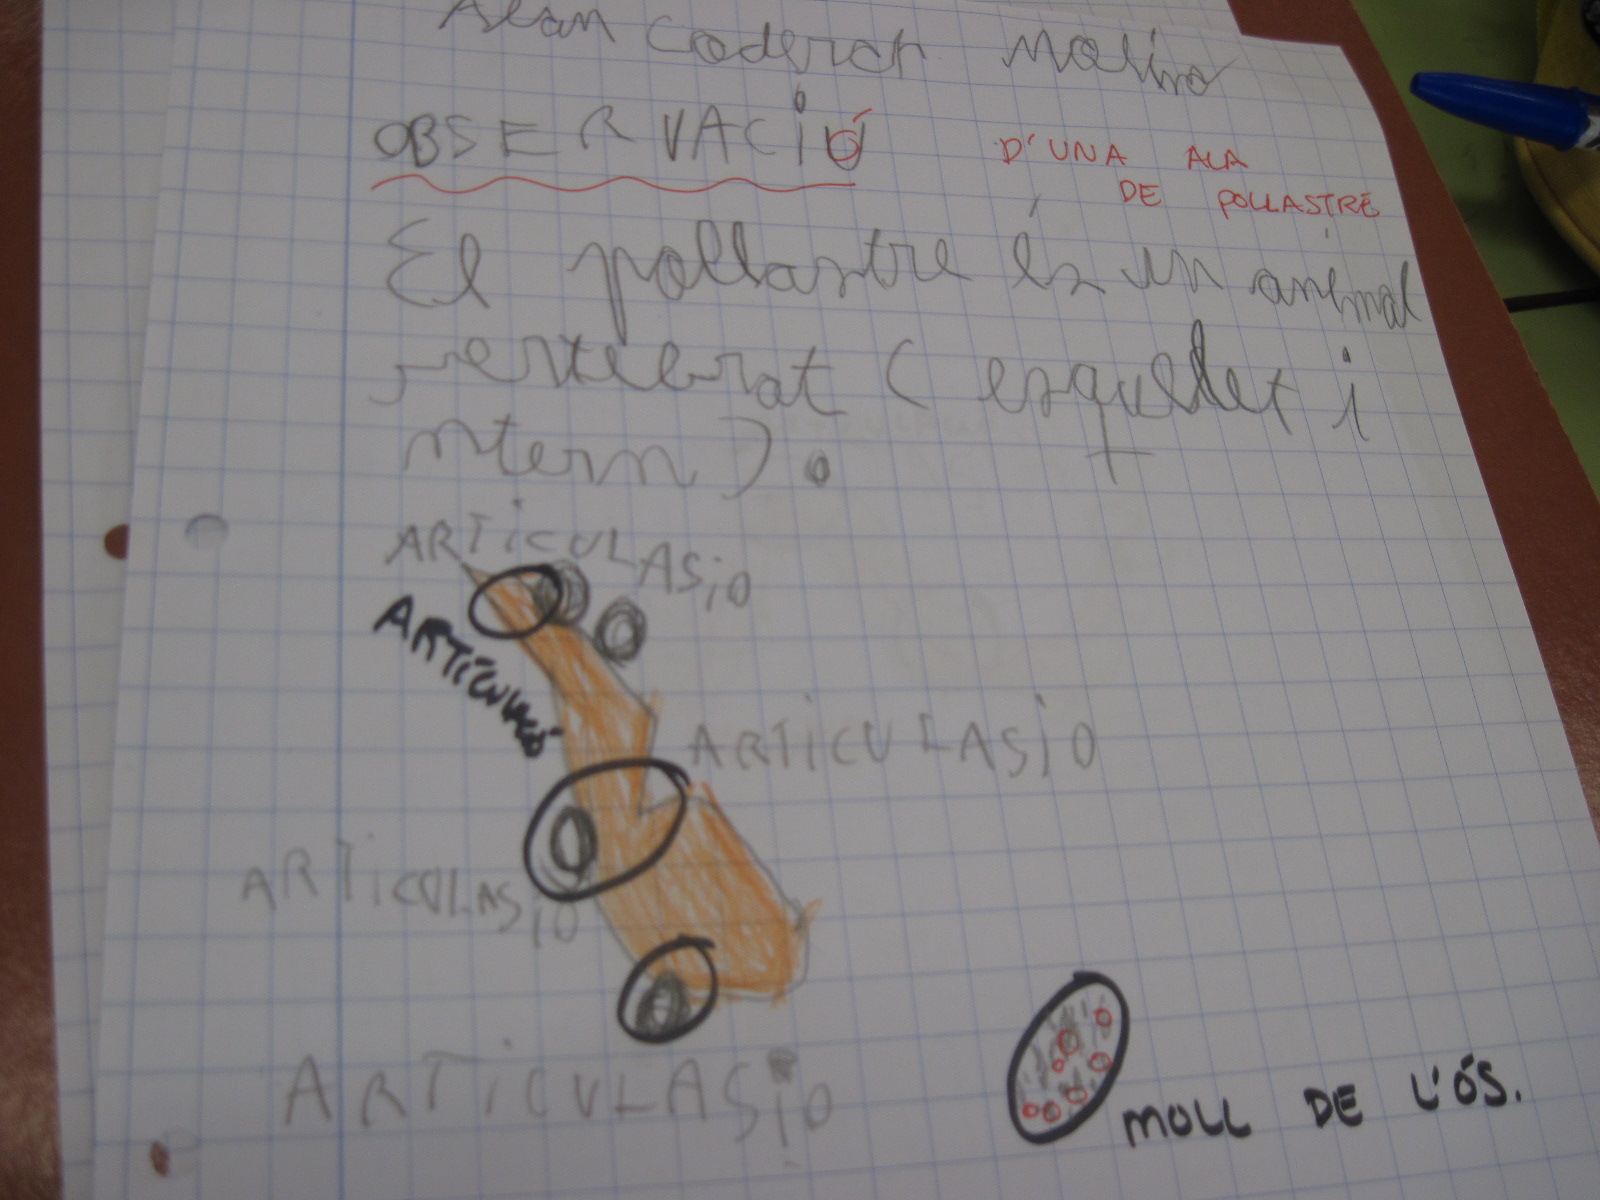 Alan Coderch Molina
OBSERVACIÓ D'UNA ALA
DE POLLASTRE
El pollastre és un animal
vertebrat (esquelet i
ntern).
ARTICULASIO
ARTICULACIÓ
ARTICULASIO
ARTICULASIO
ARTICULASIO
MOLL DE L'ÓS.